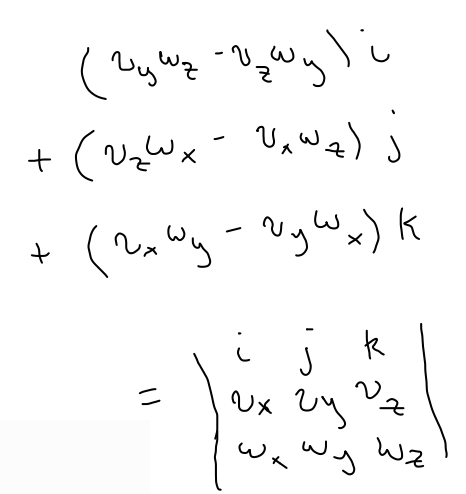 (v_y w_z - v_z w_y) i
+ (v_z w_x - v_x w_z) j
+ (v_x w_y - v_y w_x) k
= | i j k
v_x v_y v_z
w_x w_y w_z |